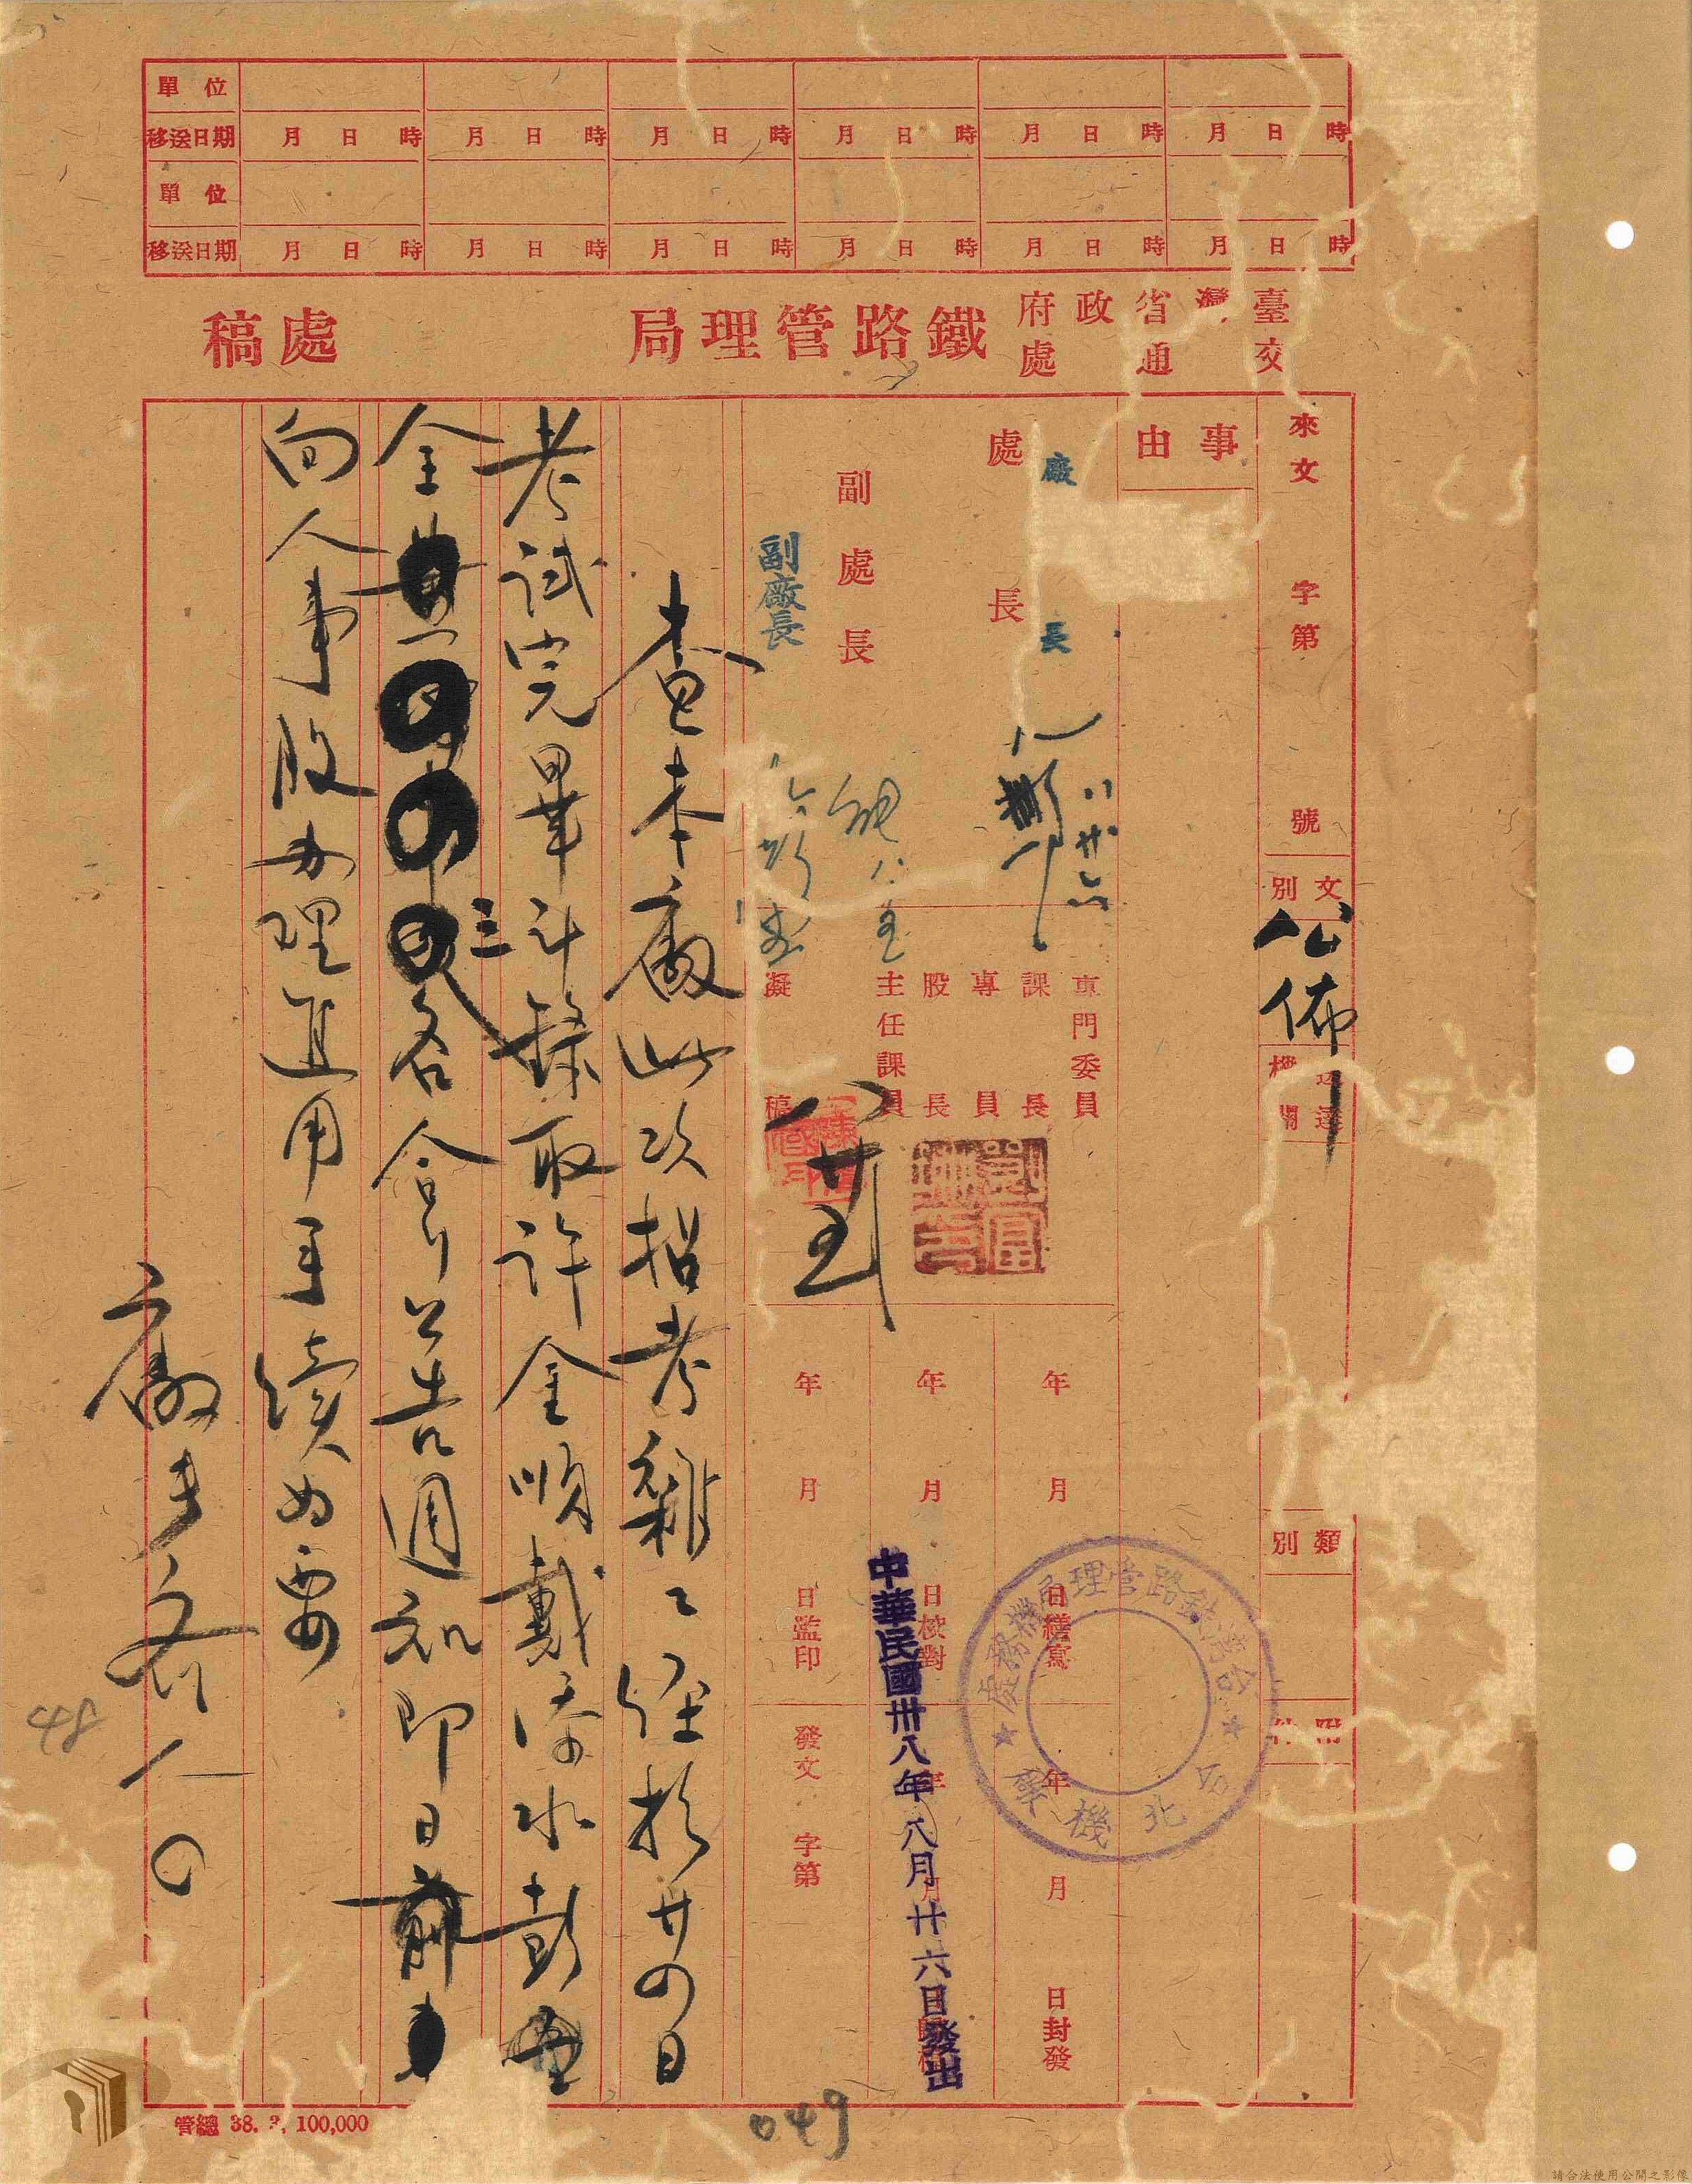 單位
移送日期 月 日 時 月 日 時 月 日 時 月 日 時 月 日 時 月 日 時
單位
移送日期 月 日 時 月 日 時 月 日 時 月 日 時 月 日 時 月 日 時
臺灣省政府
交通處
鐵路管理局
處稿
來文 字第 號
文別
公佈
送達
機關
類別
附件
事由
處長
廠長
八 廿六
副處長
副廠長
專門委員
課長
專員
股長
主任課員
擬稿
八 廿五
年 月 日繕寫
年 月 日封發
年 月 日校對
年 月
年 月 日監印
發文 字第
台灣鐵路管理局機務處
台北機
中華民國卅八年八月廿六日發出
查本廠此次招考雜工經於廿四日
考試完畢計錄取許金順戴添水彭
金
三
名合行公告週知即日前
向人事股办理進用手續為要
廠長 名 一〇
48
049
管總 38. 3. 100,000
請合法使用公開之影像